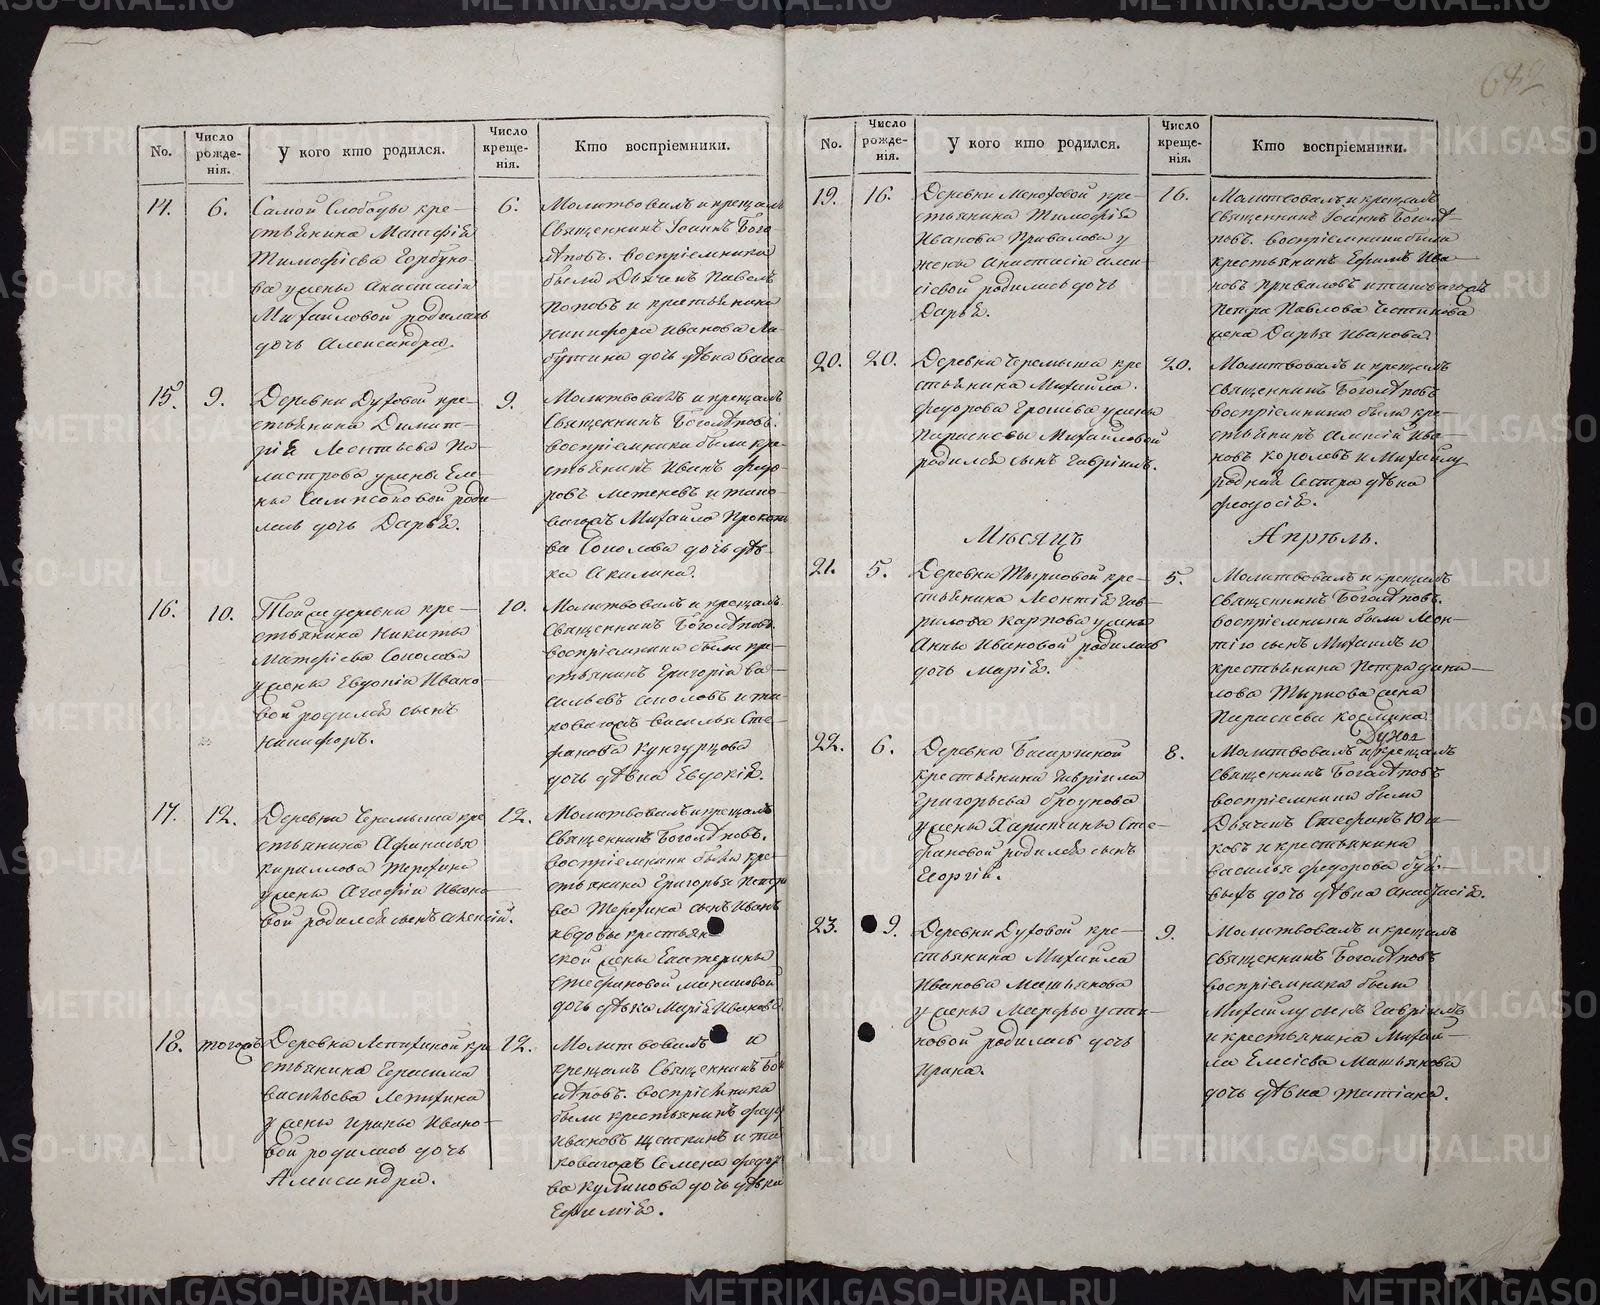 682
No.
Число рожде-нія.
У кого кто родился.
Число креще-нія.
Кто воспріемники.
14.
6.
Самой Слободы кре-
стьянина Матфія
Тимофіева Горбуно-
ва у жены Анастасіи
Михайловой родилась
дочь Александра.
6.
Молитвовалъ и крещалъ
Священникъ Іоаннъ Бого-
лѣповъ. воспріемники
были Дьячекъ Павелъ
Поповъ и крестьянина
Никифора Иванова Ла-
бутина дочь дѣвка
15.
9.
Деревни Духовой кре-
стьянина Димит-
рія Леонтьева Па-
листрова у жены Еле-
ны Сампсоновой роди-
лась дочь Дарья.
9.
Молитвовалъ и крещалъ
Священникъ Боголѣповъ.
воспріемники были кре-
стьянинъ Иванъ Федо-
ровъ и тако-
вагожъ Михайло Прокопь
ва Соколова дочь дѣв-
ка Акилина.
16.
10.
Тойже деревни кре-
стьянина Никиты
Матфіева Соколова
у жены Евдокіи Ивано-
вой родился сынъ
Никифоръ.
10.
Молитвовалъ и крещалъ
Священникъ Боголѣповъ.
воспріемники были кре-
стьянинъ Григорій Ва-
сильевъ Соколовъ и та-
ковагожъ Василья Сте-
фанова Кунгурцова
дочь дѣвка Евдокія.
17.
12.
Деревни Черемыша кре
стьянина Афанасья
Кирилова Терехина
у жены Агафіи Ивано-
вой родился сынъ Алексій.
12.
Молитвовалъ и крещалъ
Священникъ Боголѣповъ.
воспріемники были кре-
стьянина Григорья Петро
ва Терехина сынъ Иванъ
и вдовы крестьян-
ской жены Екатерины
Стефановой
дочь дѣвка Марія Иванова.
18.
тогожъ
Деревни Лепихиной кре
стьянина Герасима
Васильева Лепихина
у жены Ирины Ивано-
вой родилась дочь
Александра.
12.
Молитвовалъ и
крещалъ Священникъ Бого
лѣповъ. воспріемники
были крестьянинъ Федоръ
Ивановъ Щепкинъ и та
ковагожъ Семена Федоро
ва Куликова дочь дѣвка
Ефимія.
No.
Число рожде-нія.
У кого кто родился.
Число креще-нія.
Кто воспріемники.
19.
16.
Деревни Мохотовой кре-
стьянина Тимофія
Иванова Привалова у
жены Анастасіи Алек
сіевой родилась дочь
Дарья.
16.
Молитвовалъ и крещалъ
Священникъ Іоаннъ Боголѣ-
повъ. воспріемники были
крестьянинъ Ефимъ Ива-
новъ Приваловъ и таковагожъ
Петра Павлова
жена Дарья Иванова.
20.
20.
Деревни Черемыша кре
стьянина Михайла
Федорова Ерошева у жены
Парасковьи Михайловой
родился сынъ Гавріилъ.
20.
Молитвовалъ и крещалъ
Священникъ Боголѣповъ
воспріемники были кре-
стьянинъ Алексій Ива-
новъ Королевъ и Михайлу
родная сестра дѣвка
Феодосія.
Мѣсяцъ Апрѣль.
21.
5.
Деревни Тыркиовой кре-
стьянина Леонтія Гав-
рилова Карпова у жены
Анны Ивановой родилась
дочь Марія.
5.
Молитвовалъ и крещалъ
Священникъ Боголѣповъ.
воспріемники были Леон-
тію сынъ Михаилъ и
крестьянина Петра Дани-
лова Тыркова жена
Параскева Космина
22.
6.
Деревни Басаргиной
крестьянина Гавріила
Григорьева Броунова
у жены Харитины Сте-
фановой родился сынъ
Георгій.
8.
Духов
Молитвовалъ и крещалъ
Священникъ Боголѣповъ
воспріемники были
Дьячекъ Стефанъ Юш-
ковъ и крестьянина
Василья Федорова
дочь дѣвка Анастасія.
23.
9.
Деревни Духовой кре-
стьянина Михайла
Иванова Матьякова
у жены Марфы Усти-
новой родилась дочь
Ирина.
9.
Молитвовалъ и крещалъ
Священникъ Боголѣповъ
воспріемники были
Михайлу сынъ Гавріилъ
и крестьянина Михай-
ла Елесіева Матьякова
дочь дѣвка Татіана.
METRIKI.GASO-URAL.RU